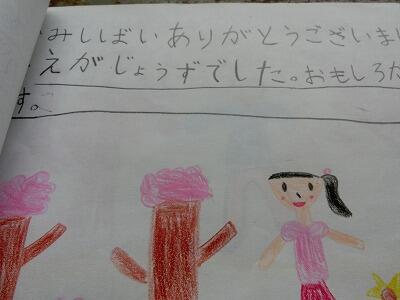 みしばいありがとうございま
えがじょうずでした。おもしろ
す。